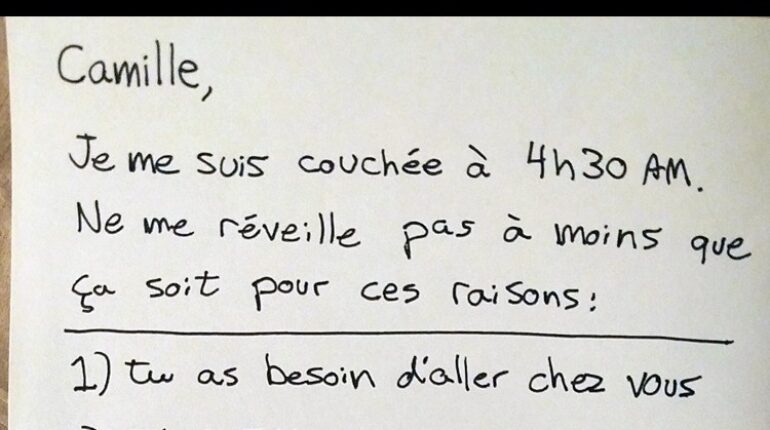 Camille,
Je me suis couchée à 4h30 AM.
Ne me réveille pas à moins que
ça soit pour ces raisons:
1) tu as besoin d'aller chez vous